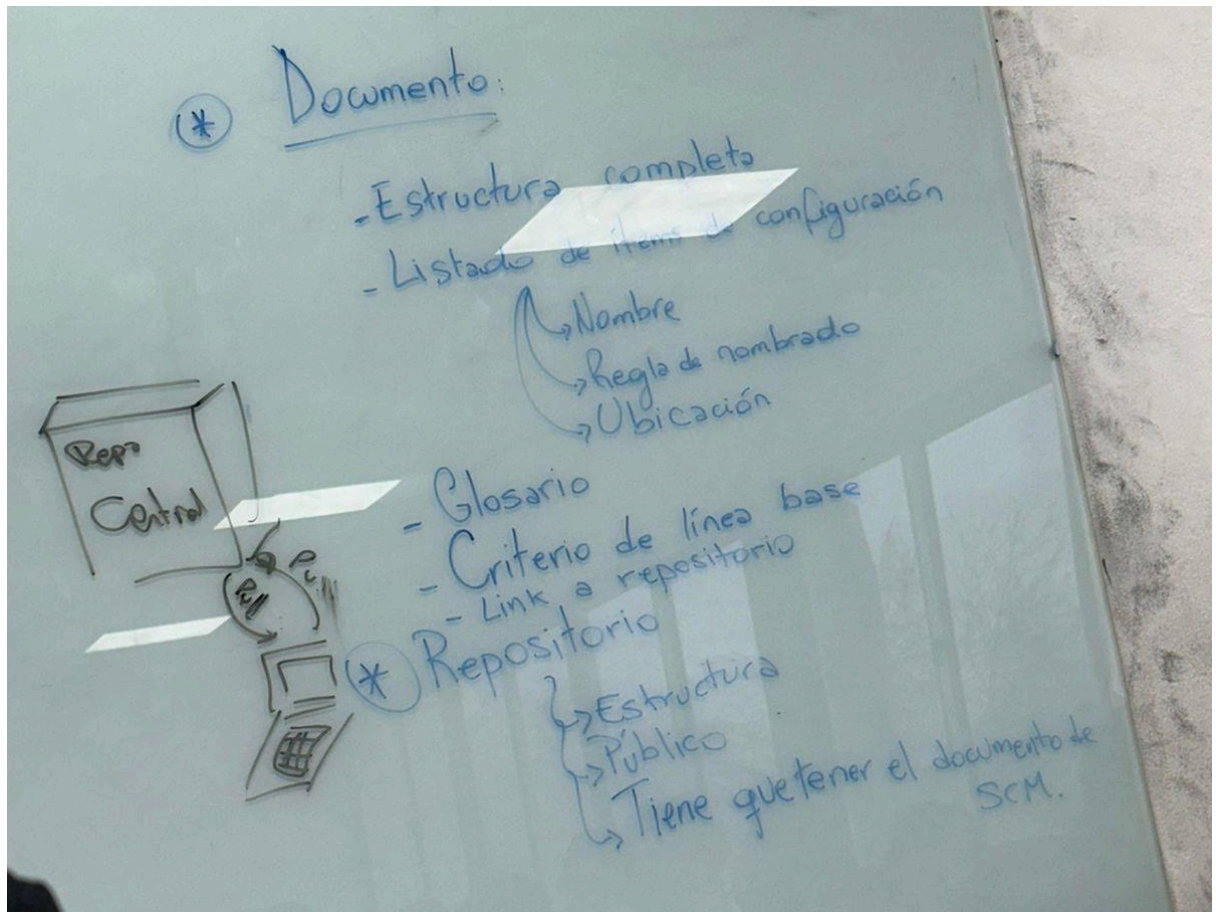 * Documento:
- Estructura completa
- Listado de ítems de configuración
Nombre
Regla de nombrado
Ubicación
Repo
Central
- Glosario
- Criterio de línea base
- Link a repositorio
* Repositorio
Estructura
Público
Tiene que tener el documento de
SCM.